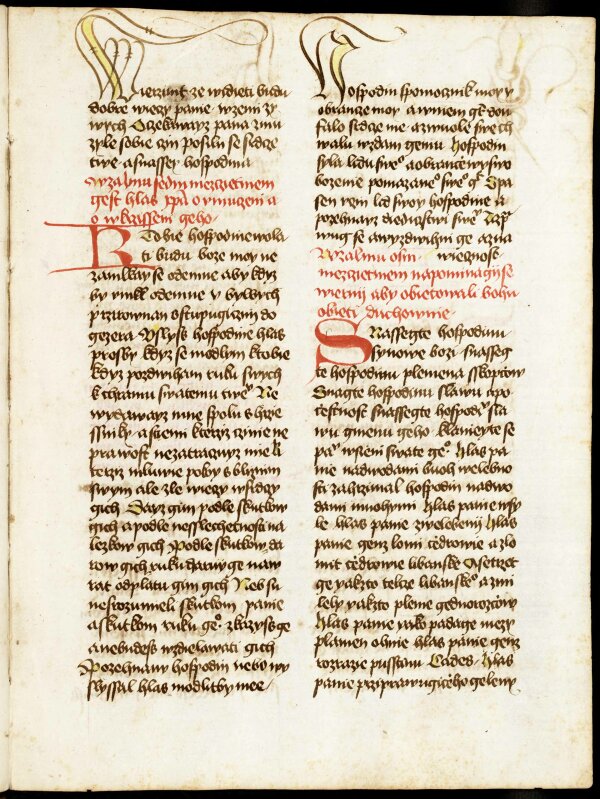 Wierzimt ze widieti budu
dobre wieczy panie wzemi zy
wych Oczekaway pana zmu
zyle sobie czin posilu se srdcze
twe a snassey hospodina
W zalmu sedmmezczietmem
gest hlas
o wkrzissem geho
K Tobie hospodine wola
ti budu boze moy ne
zamlkay se odemne aby kdyz
by mlkl odemne y bylbych
przirownan ostupugiczim do
gezera Vslyss hospodine hlas
prosby kdyz se modlym ktobie
kdyz pozdwiham ruku swych
k chramu swatemu twe° Ne
wydaway mne spolu s hrze
ssniky a stiemi kterzyz czinie ne
prawost nezatraczuy mie li
terzyz mluwie pokoy s bliznim
swym ale zle wieczy wsrdczy
gich Day gim podle skutkow
gich a podle nesslechetnosti na
lezkow gich Podle skutkow da
row gich ruku
rat odplatu gim gich Neb su
nesrozumieli skutkom panie
a skutkom ruku ge° zkazyss ge
a nebudess wzdielawati gich
Pozehnany hospodin nebo wy
slyssal hlas modlitby mee
Hospodin spomocznik moy y
obrancze moy a wniem
falo srdcze me a zwuole swe ch
walu wzdam gemu Hospodin
syla lidu swe° a obrancze
bozenie pomazane° swe° Spa
sen rczin lid swoy hospodine a
pozehnay diedictwi swe°
wug se a wyzdwihni ge azna
W zalmu osm wiecznost
mezczietmem napominagij se
wierni aby obietowali bohu
obieti duchownie
S Nassegte hospodinu
synowe bozi snasseg
te hospodinu plemena skopcow
Snassegte hospodinu slawu a po
czestnost snassegte hospodi° sla
wu gmenu geho klanieyte se
pa° wsieni swate ge° Hlas pa
nie nadwodami buoh welebno
sti zahrzimal hospodin nadwo
dami mnohymi Hlas panie wsy
le hlas panie zwelebeni Hlas
panie genz lomi czedrowie a zlo
mit czedrowie libanske A setrzet
ge yakzto telcze libanske° a zmi
lely yakzto pleme gednorozczow
Hlas panie yako padage mezy
plamen ohnie hlas panie genz
rozrazie pusstinu Cades Hlas
panie przyprawugicieho geleny